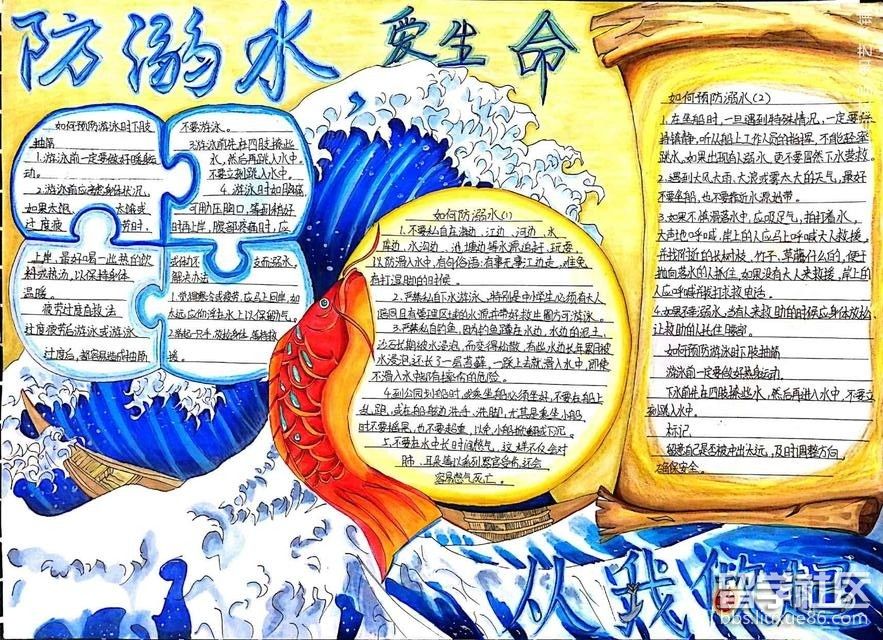 防溺水 爱生命
如何预防游泳时下肢
抽筋
1.游泳前一定要做好暖身运
动。
2.游泳前应考虑身体状况,
如果太饱、太饿或
过度疲
不要游泳。
3.游泳前先在四肢撩些
水,然后再跳入水中。
不要立刻跳入水中。
4.游泳时如胸痛,
可用力压胸口,等到稍好
时再上岸,腹部疼痛时,应
上岸,最好喝一些热的饮
料或热汤,以保持身体
温暖。
疲劳过度自救法
过度疲劳后游泳或游泳
过度后,都容易造成抽筋
解决办法
1.觉得寒冷或疲劳,应马上回岸,如
太远应仰浮在水上以保留力气。
如何防溺水(1)
1.不要私自在海边、江边、河边、水
库边、水沟边、池塘边等水源追赶、玩耍,
以防滑入水中,有句俗语:有事无事江边走,难免
有打湿脚的时候。
2.严禁私自下水游泳,特别是中小学生必须有大人
陪同且有管理区域的水源并带好救生圈方可游泳。
3.严禁私自钓鱼,因钓鱼蹲在水边,水边的泥土、
沙石长期被水浸泡,而变得松散,有些水边长年累月被
水浸泡还长了一层苔藓,一踩上去就滑入水中,即使
不滑入水中都有摔伤的危险。
4.到公园划船时,或乘坐船必须坐好,不要在船上
乱跑,或在船舷边洗手、洗脚,尤其是乘坐小船
时不要摇晃,也不要超重,以免小船掀翻或下沉。
5.不要在水中长时间憋气,这样不仅会对
肺、耳鼻等以系列器官受伤,还会
容易憋气死亡。
如何预防溺水(2)
1.在坐船时,一旦遇到特殊情况,一定要保
持镇静,听从船上工作人员的指挥,不能轻率
跳水,如果出现有人溺水,更不要冒然下水营救。
2.遇到大风大雨、大浪或雾太大的天气,最好
不要坐船,也不要靠近水源地带。
3.如果不慎滑落水中,应吸足气,拍打着水,
大声地呼喊,岸上的人应马上呼喊大人救援,
并找附近的长树枝、竹子、草藤什么的,便于
抛向落水的人抓住,如果没有大人来救援,岸上的
人应呼喊并拨打求救电话。
4.如果不幸溺水,当有来救助的时候应身体放松,
让救助的人托住腰部。
如何预防游泳时下肢抽筋
游泳前一定要做好热身运动。
下水前先在四肢撩些水,然后再进入水中,不要立
刻跳入水中。
标记
留意自己是否被冲出太远,及时调整方向,
确保安全。
从我做起
留学社区
bbs.liuxue86.com